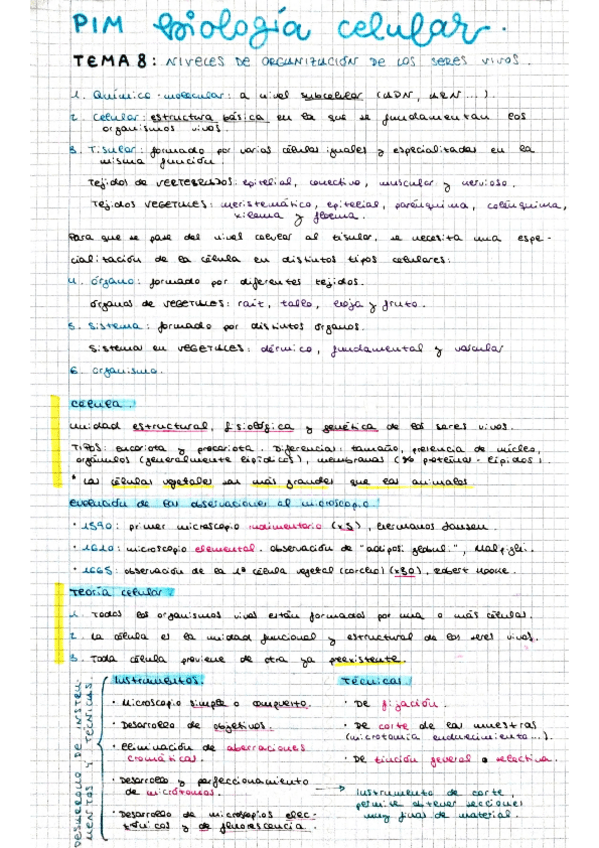 PIM biología celular.
TEMA 8: NIVELES DE ORGANIZACIÓN DE LOS SERES VIVOS.
1. Químico-molecular: a nivel subcelular (ADN, ARN...).
2. Celular: estructura básica en la que se fundamentan los
organismos vivos.
3. Tisular: formado por varias células iguales y especializadas en la
misma función.
Tejidos de VERTEBRADOS: epitelial, conectivo, muscular y nervioso.
Tejidos VEGETALES: meristemático, epitelial, parénquima, colénquima,
xilema y floema.
Para que se pase del nivel celular al tisular, se necesita una espe-
cialización de la célula en distintos tipos celulares:
4. Órgano: formado por diferentes tejidos.
Órganos de VEGETALES: raíz, tallo, hoja y fruto.
5. Sistema: formado por distintos órganos.
Sistema en VEGETALES: dérmico, fundamental y vascular
6. Organismo.
Célula.
Unidad estructural, fisiológica y genética de los seres vivos.
TIPOS: eucariota y procariota. Diferencias: tamaño, presencia de núcleo,
orgánulos (generalmente lipídicos), membranas (% proteínas - lípidos).
* Las células vegetales son más grandes que las animales
Evolución de las observaciones al microscopio.
· 1590: primer microscopio rudimentario (x3), Hermanos Janssen.
· 1610: microscopio elemental. Observación de "adiposi globul.", Malpigli.
· 1665: observación de la 1ª célula vegetal (corcho) (x30). Robert Hooke.
Teoría celular:
1. Todos los organismos vivos están formados por una o más células.
2. La célula es la unidad funcional y estructural de los seres vivos.
3. Toda célula proviene de otra ya preexistente.
DESARROLLO DE INSTRU-
MENTOS Y TÉCNICAS.
Instrumentos.
· Microscopio simple o compuesto.
· Desarrollo de objetivos.
· Eliminación de aberraciones
cromáticas.
· Desarrollo y perfeccionamiento
de micrótomos.
· Desarrollo de microscopios elec-
trónicos y de fluorescencia.
Técnicas.
· De fijación.
· De corte de las muestras
(microtomía endurecimiento...).
· De tinción general o selectiva.
→ Instrumento de corte,
permite obtener secciones
muy finas de material.